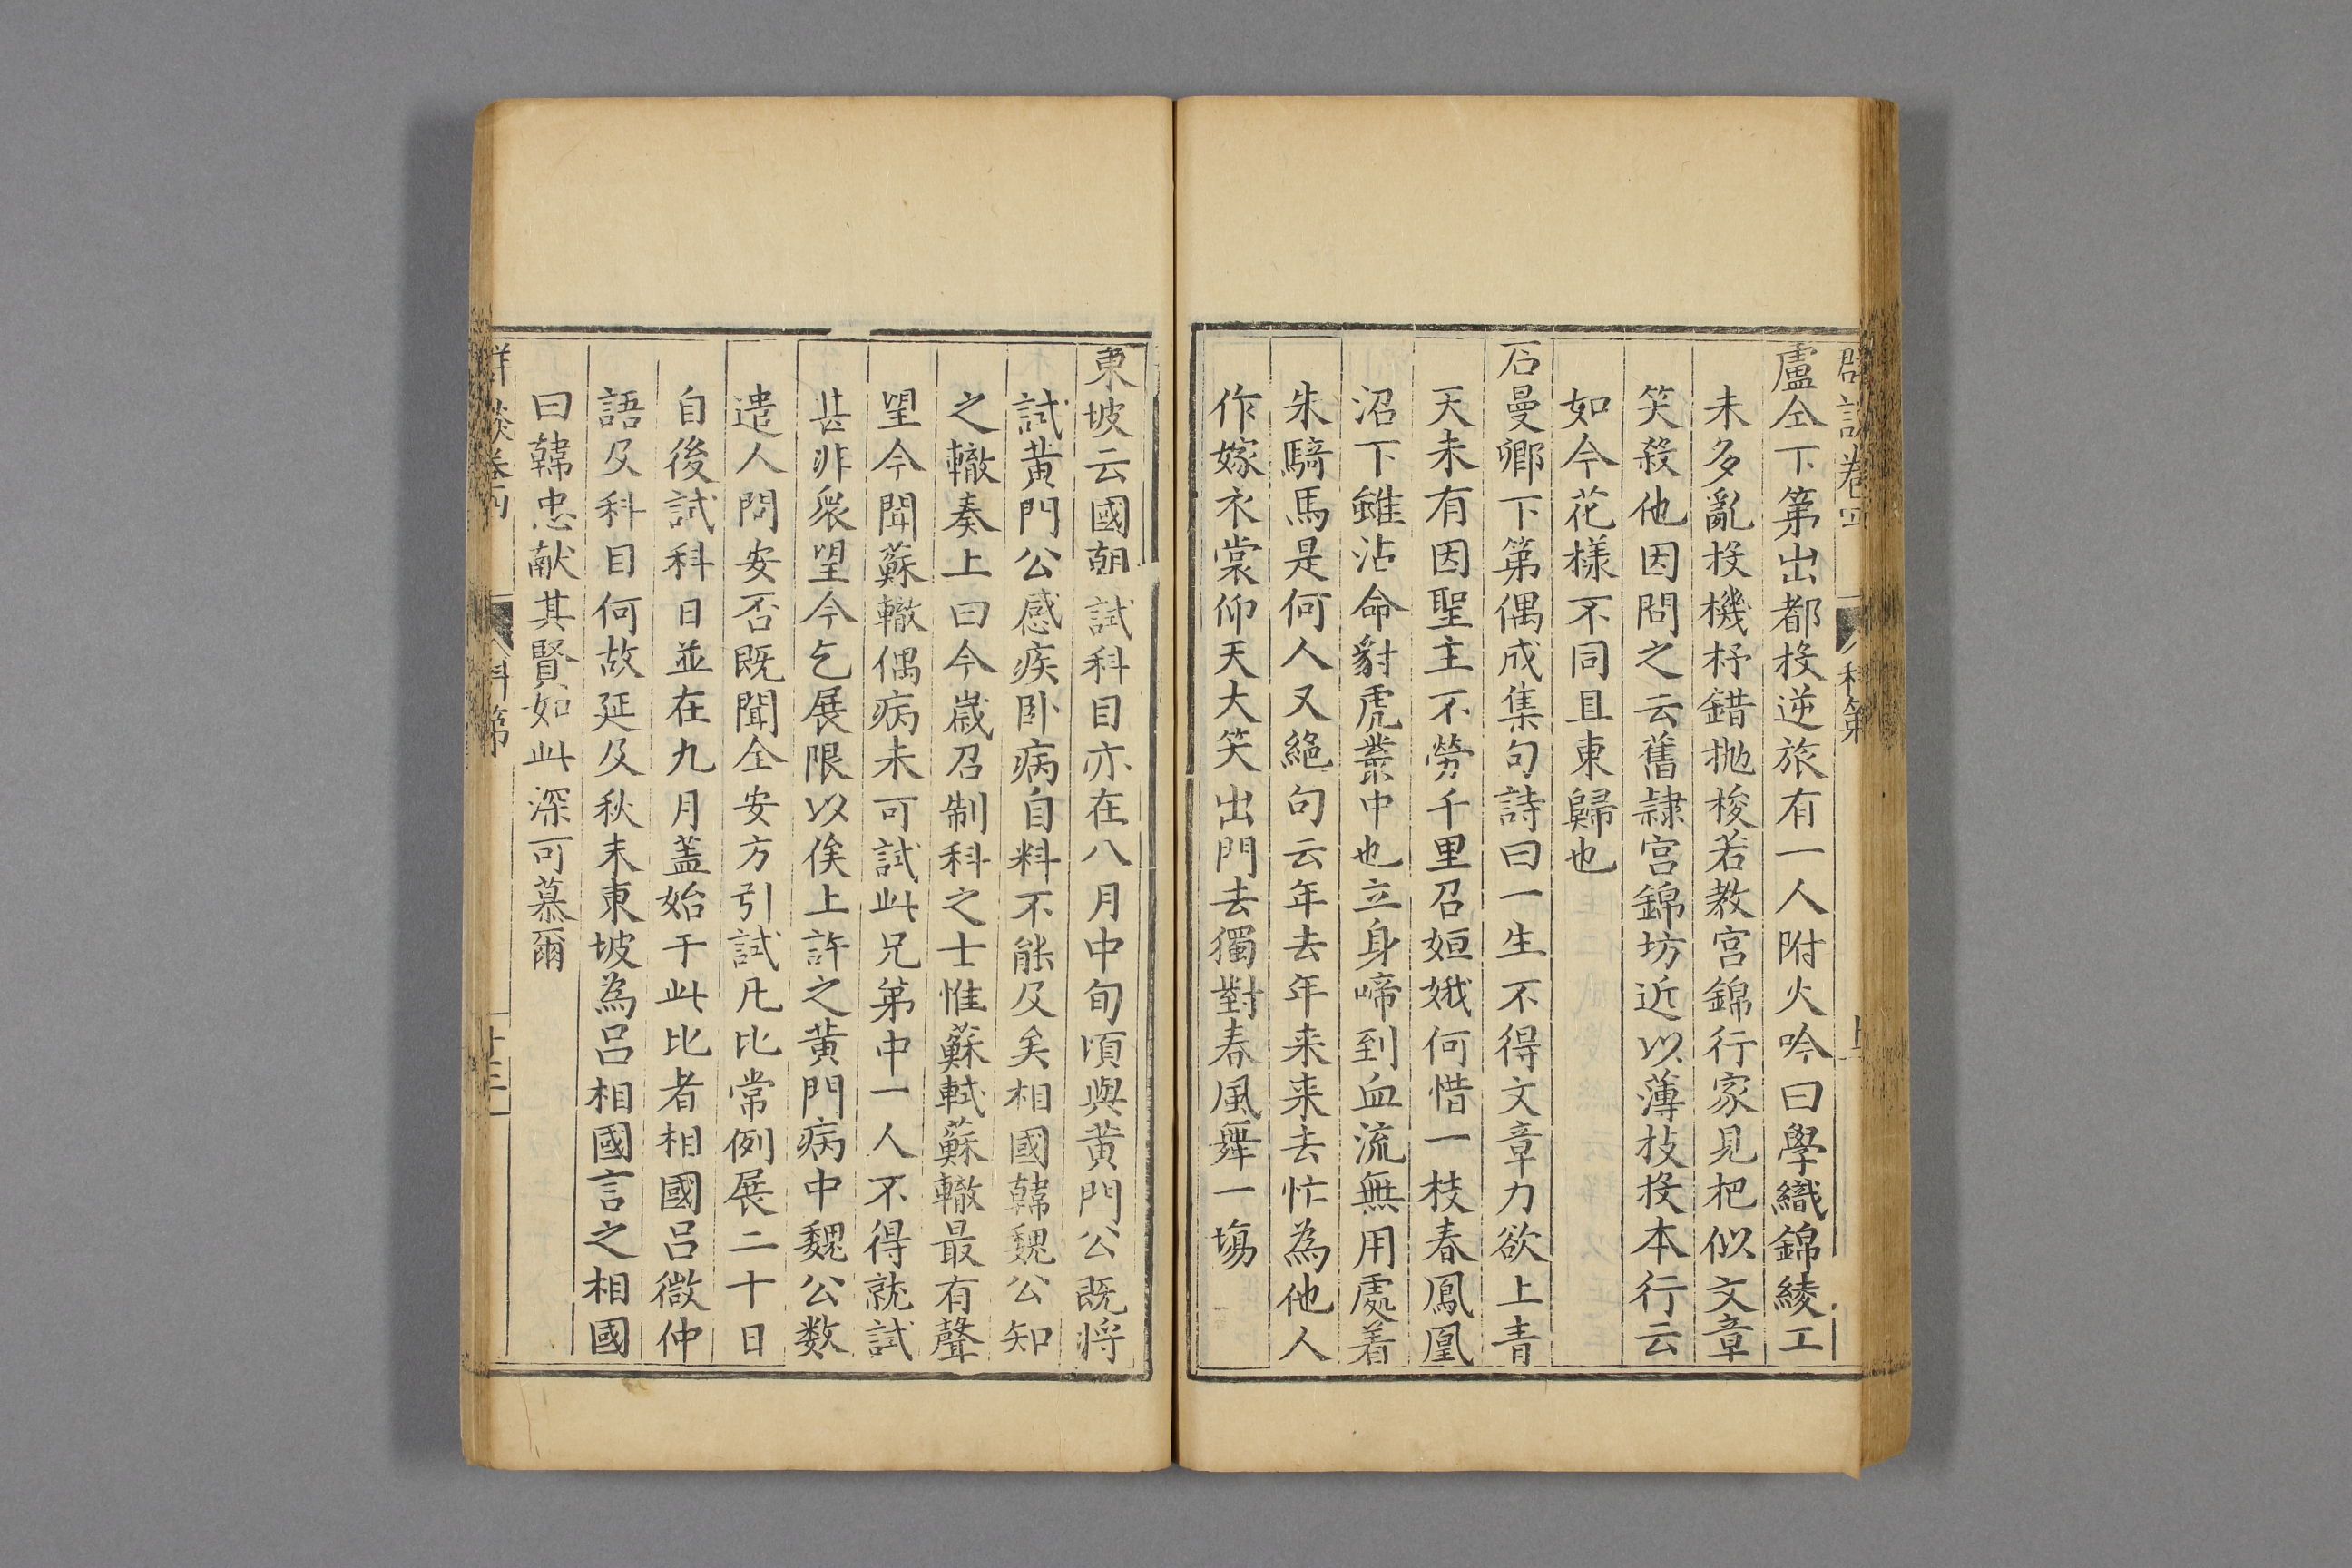 盧仝下第出都投逆旅有一人附火吟曰學織錦綾工
未多亂投機杼錯抛梭若教宫錦行家見把似文章
笑殺他因問之云舊隷宫錦坊近以薄技投本行云
如今花樣不同且東歸也
石曼卿下第偶成集句詩曰一生不得文章力欲上青
天未有因聖主不勞千里召姮娥何惜一枝春鳳凰
沼下雖沾命豺虎叢中也立身啼到血流無用處着
朱騎馬是何人又絕句云年去年来来去忙為他人
作嫁衣裳仰天大笑出門去獨對春風舞一塲
東坡云國朝試科目亦在八月中旬頃與黄門公既将
試黄門公感疾卧病自料不能及矣相國韓魏公知
之轍奏上曰今嵗召制科之士惟蘇軾蘇轍最有聲
望今聞蘇轍偶病未可試此兄第中一人不得就試
甚非衆望今乞展限以俟上許之黄門病中魏公数
遣人問安否既聞全安方引試凡比常例展二十日
自後試科日並在九月盖始于此比者相國吕微仲
語及科目何故延及秋末東坡為吕相國言之相國
曰韓忠献其賢如此深可慕爾